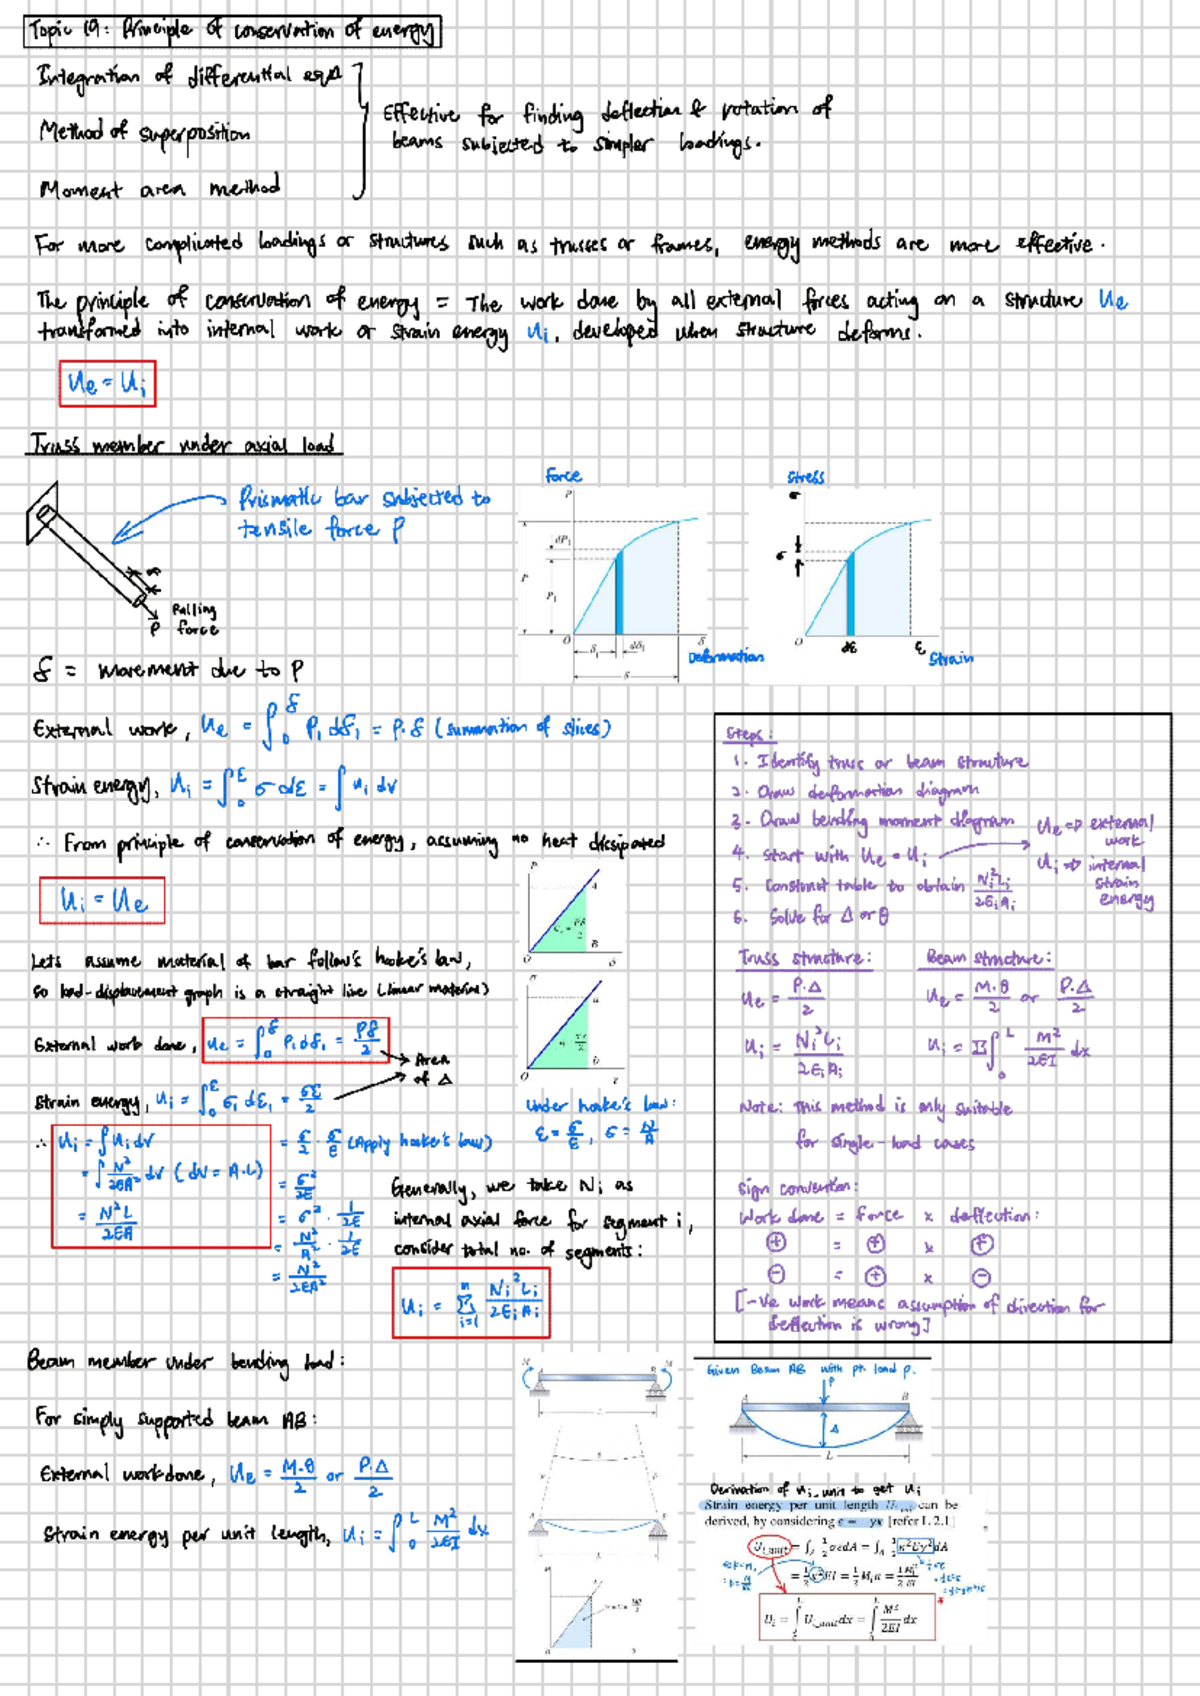 Topic 19: Principle of conservation of energy
Integration of differential eqn
Method of superposition
Moment area method
Effective for finding deflection & rotation of
beams subjected to simpler loadings.
For more complicated loadings or structures such as trusses or frames, energy methods are more effective.
The principle of conservation of energy = The work done by all external forces acting on a structure Ue
transformed into internal work or strain energy Ui, developed when structure deforms.
Ue = Ui
Truss member under axial load
Prismatic bar subjected to
tensile force P
Pulling
force
P
Force
P
dP₁
P
P₁
O
δ₁
dδ₁
δ
δ
Deformation
Stress
σ
σ
O
dε
ε
Strain
δ = movement due to P
External work, Ue = ∫₀^δ P₁ dδ₁ = P·δ (summation of slices)
Strain energy, Ui = ∫₀^ε σ dε = ∫ ui dv
∴ From principle of conservation of energy, assuming no heat dissipated
Ui = Ue
Lets assume material of bar follows hooke's law,
so load-displacement graph is a straight line (linear material)
External work done, Ue = ∫₀^δ P₁dδ₁ = Pδ/2
Area
of Δ
Strain energy, ui = ∫₀^ε σ₁ dε₁ = σε/2
∴ Ui = ∫ ui dv
= ∫ N²/2EA² dv (dv = A·L)
= N²L/2EA
= σ/2 · σ/E (Apply hooke's law)
= σ²/2E
= σ² · 1/2E
= N²/A² · 1/2E
= N²/2EA²
Under hooke's law:
ε = σ/E, σ = N/A
Generally, we take Ni as
internal axial force for segment i,
consider total no. of segments:
Ui = Σ(i=1 to n) Ni²Li/2EiAi
Steps:
1. Identify truss or beam structure
2. Draw deformation diagram
3. Draw bending moment diagram
4. Start with Ue = Ui
5. Construct table to obtain Ni²Li/2EiAi
6. Solve for Δ or θ
Ue => external
work
Ui => internal
strain
energy
Truss structure:
Ue = P.Δ/2
Ui = Ni²Li/2EiAi
Beam structure:
Ue = M.θ/2 or P.Δ/2
Ui = Σ∫₀^L M²/2EI dx
Note: This method is only suitable
for single-load cases
Sign convention:
Work done = force x deflection:
⊕ = ⊕ x ⊕
⊖ = ⊕ x ⊖
[-ve work means assumption of direction for
deflection is wrong]
Beam member under bending load:
For simply supported beam AB:
External workdone, Ue = M.θ/2 or P.Δ/2
Strain energy per unit length, Ui = ∫₀^L M²/2EI dx
Given Beam AB with pt. load P.
P
A
B
Δ
L
Derivation of Ui_unit to get Ui
Strain energy per unit length can be
derived, by considering ε = -yκ [refer L2.1]
Ui_unit = ∫A ½σεdA = ∫A ½κ²Ey²dA
= ½κ²EI = ½Miκ = ½ Mi²/EI
Ui = ∫₀^L Ui_unit dx = ∫₀^L M²/2EI dx